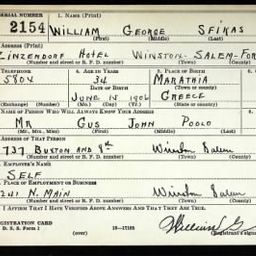 SERIAL NUMBER 1. NAME (Print)
2154 WILLIAM GEORGE SFIKAS
(First) (Middle) (Last)
ADDRESS (Print)
ZINZENDORF HOTEL WINSTON-SALEM-FOR
(Number and street or R. F. D. number) (Town)
TELEPHONE 4. AGE IN YEARS 5. PLACE OF BIRTH
5804 34 MARATHIA
DATE OF BIRTH
JUNE 15 1906 GREECE
(Exchange) (Number) (Mo.) (Day) (Yr.)
NAME OF PERSON WHO WILL ALWAYS KNOW YOUR ADDRESS
MR GUS JOHN POOLO
(Mr., Mrs., Miss) (First) (Middle) (Last)
ADDRESS OF THAT PERSON
737 BUXTON AND 8th Winston Salem
(Number and street or R. F. D. number) (Town)
EMPLOYER'S NAME
SELF
PLACE OF EMPLOYMENT OR BUSINESS
241 N. MAIN Winston Salem
(Number and street or R. F. D. number) (Town)
I AFFIRM THAT I HAVE VERIFIED ABOVE ANSWERS AND THAT THEY ARE TRUE.
REGISTRATION CARD
D. S. S. Form 1 William G.
(Registrant's signa